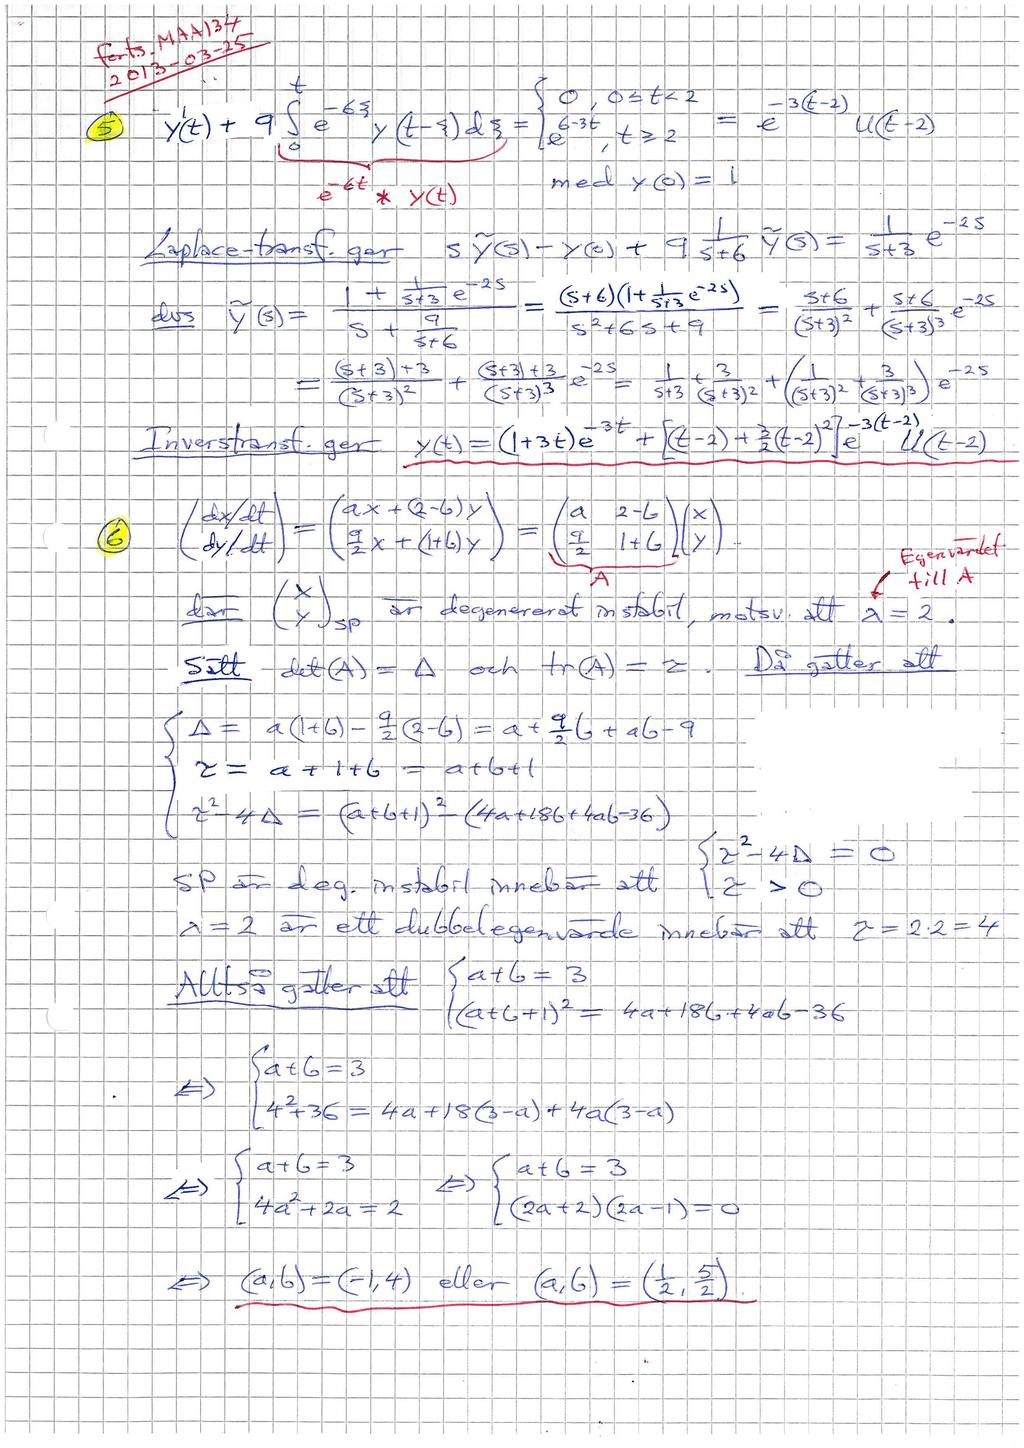 forts. MAA134
2013-03-25
5 y'(t) + 9 ∫₀ᵗ e^{-6ξ} y(t-ξ) dξ = { 0, 0≤t<2 ; e^{6-3t}, t≥2 = e^{-3(t-2)} U(t-2)
e^{-6t} * y(t) med y(0) = 1
Laplace-transf. ger s ỹ(s) - y(0) + 9 1/(s+6) ỹ(s) = 1/(s+3) e^{-2s}
dvs ỹ(s) = (1 + 1/(s+3) e^{-2s})/(s + 9/(s+6)) = (s+6)(1 + 1/(s+3) e^{-2s})/(s²+6s+9) = (s+6)/(s+3)² + (s+6)/(s+3)³ e^{-2s}
= ((s+3)+3)/(s+3)² + ((s+3)+3)/(s+3)³ e^{-2s} = 1/(s+3) + 3/(s+3)² + (1/(s+3)² + 3/(s+3)³) e^{-2s}
Inverstransf. ger y(t) = (1+3t)e^{-3t} + [(t-2) + 3/2(t-2)²]e^{-3(t-2)} U(t-2)
6 (dx/dt ; dy/dt) = (ax + (2-b)y ; 9/2 x + (1+b)y) = (a 2-b ; 9/2 1+b)(x ; y).
A
Egenvärdet
till A
där (x ; y)_SP är degenererat instabil, motsv. att λ = 2.
Sätt det(A) = Δ och tr(A) = τ. Då gäller att
{ Δ = a(1+b) - 9/2(2-b) = a + 9/2 b + ab - 9
τ = a + 1 + b = a+b+1
τ² - 4Δ = (a+b+1)² - (4a+18b+4ab-36)
SP är deg. instabil innebär att { τ² - 4Δ = 0 ; τ > 0
λ = 2 är ett dubbelegenvärde innebär att τ = 2·2 = 4
Alltså gäller att { a+b = 3
(a+b+1)² = 4a+18b+4ab-36
⇔ { a+b = 3
4²+36 = 4a + 18(3-a) + 4a(3-a)
⇔ { a+b = 3 ⇔ { a+b = 3
4a²+2a = 2 (2a+2)(2a-1) = 0
⇔ (a,b) = (-1,4) eller (a,b) = (1/2, 5/2).